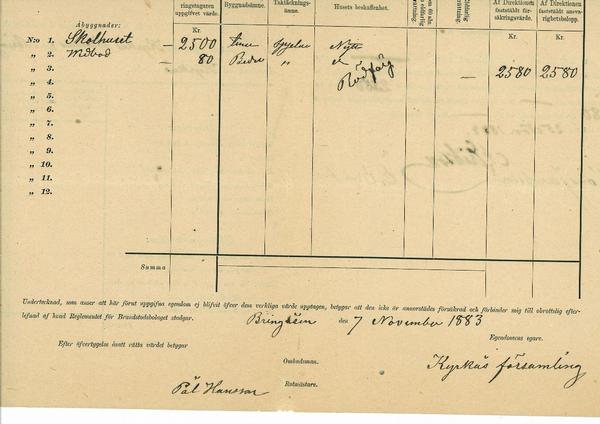 ringstagaren uppgifvet värde.
Byggnadsämne.
Taktäcknings-ämne.
Husets beskaffenhet.
Af Direktionen fastställdt försäkringsvärde.
Af Direktionen fastställdt ansvarighetsbelopp.
Åbyggnader:
Kr. Kr. Kr.
N:o 1. Skolhuset — 2500 timr spjelor Nytt
„ 2. Vedbod — 80
„ 3. Rödfärg — 2580 2580
„ 4.
„ 5.
„ 6.
„ 7.
„ 8.
„ 9.
„ 10.
„ 11.
„ 12.
Summa
Undertecknad, som anser att här förut uppgifna egendom ej blifvit öfver dess verkliga värde upptagen, betygar att den icke är annorstädes försäkrad och förbinder mig till obrottslig efter-
lefnad af hvad Reglementet för Brandstodsbolaget stadgar.
Bringåsen den 7 November 1883
Egendomens egare.
Efter öfvertygelse åsatt rätta värdet betygar
Kyrkås församling
Ombudsman.
Pål Hansson Rotmästare.